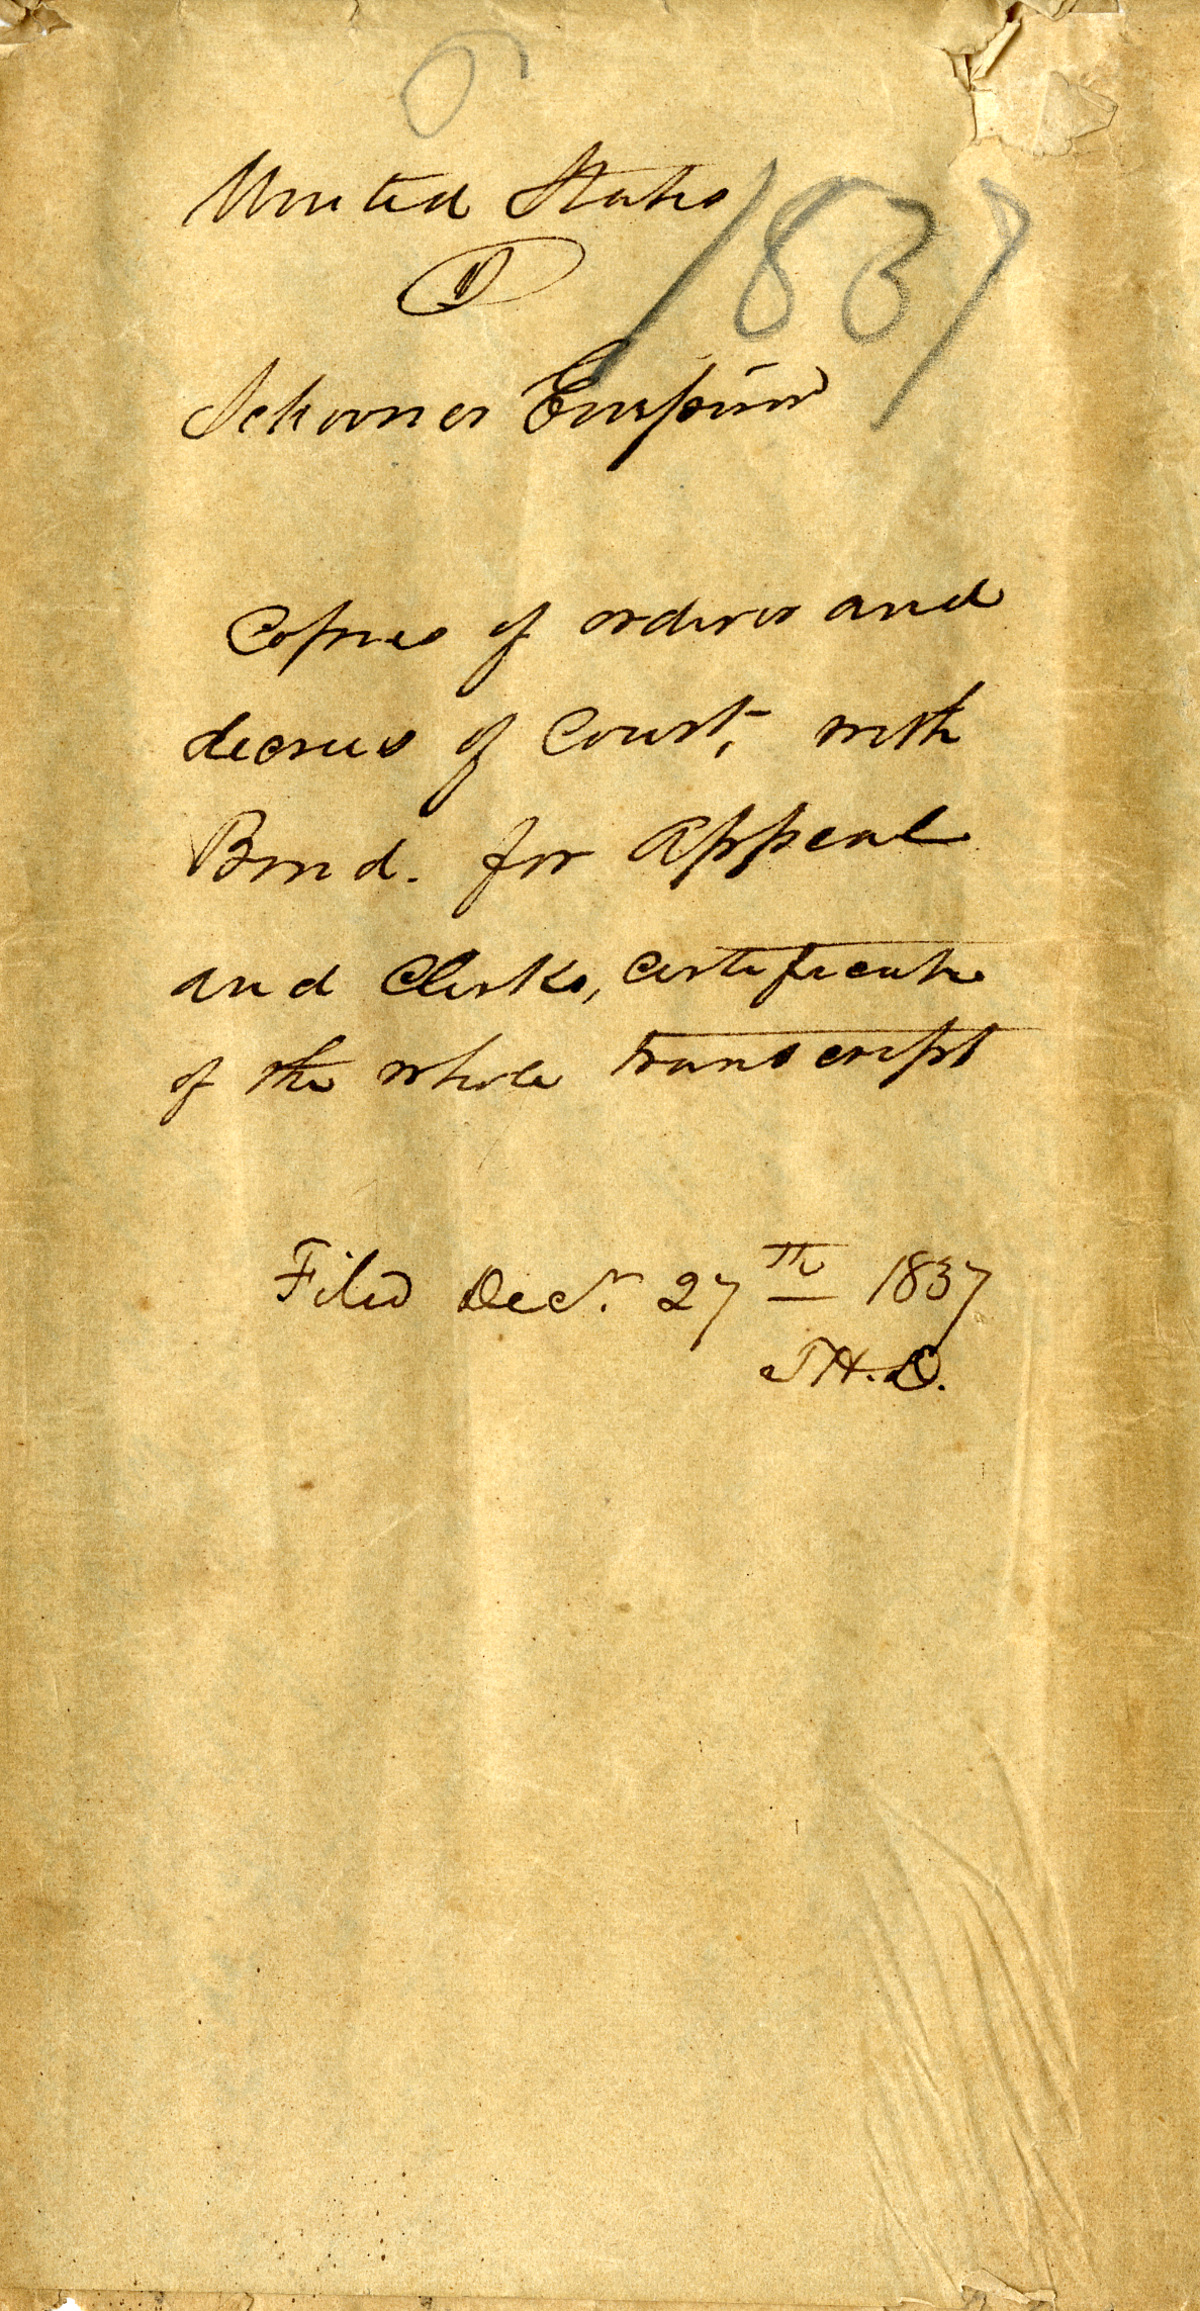 United States
1837
vs
Schooner Emperor
Copies of orders and
decrees of Court, with
Bond. for Appeal
and Clerks, certificate
of the whole transcript
Filed Decr. 27th 1837
J.H.D.